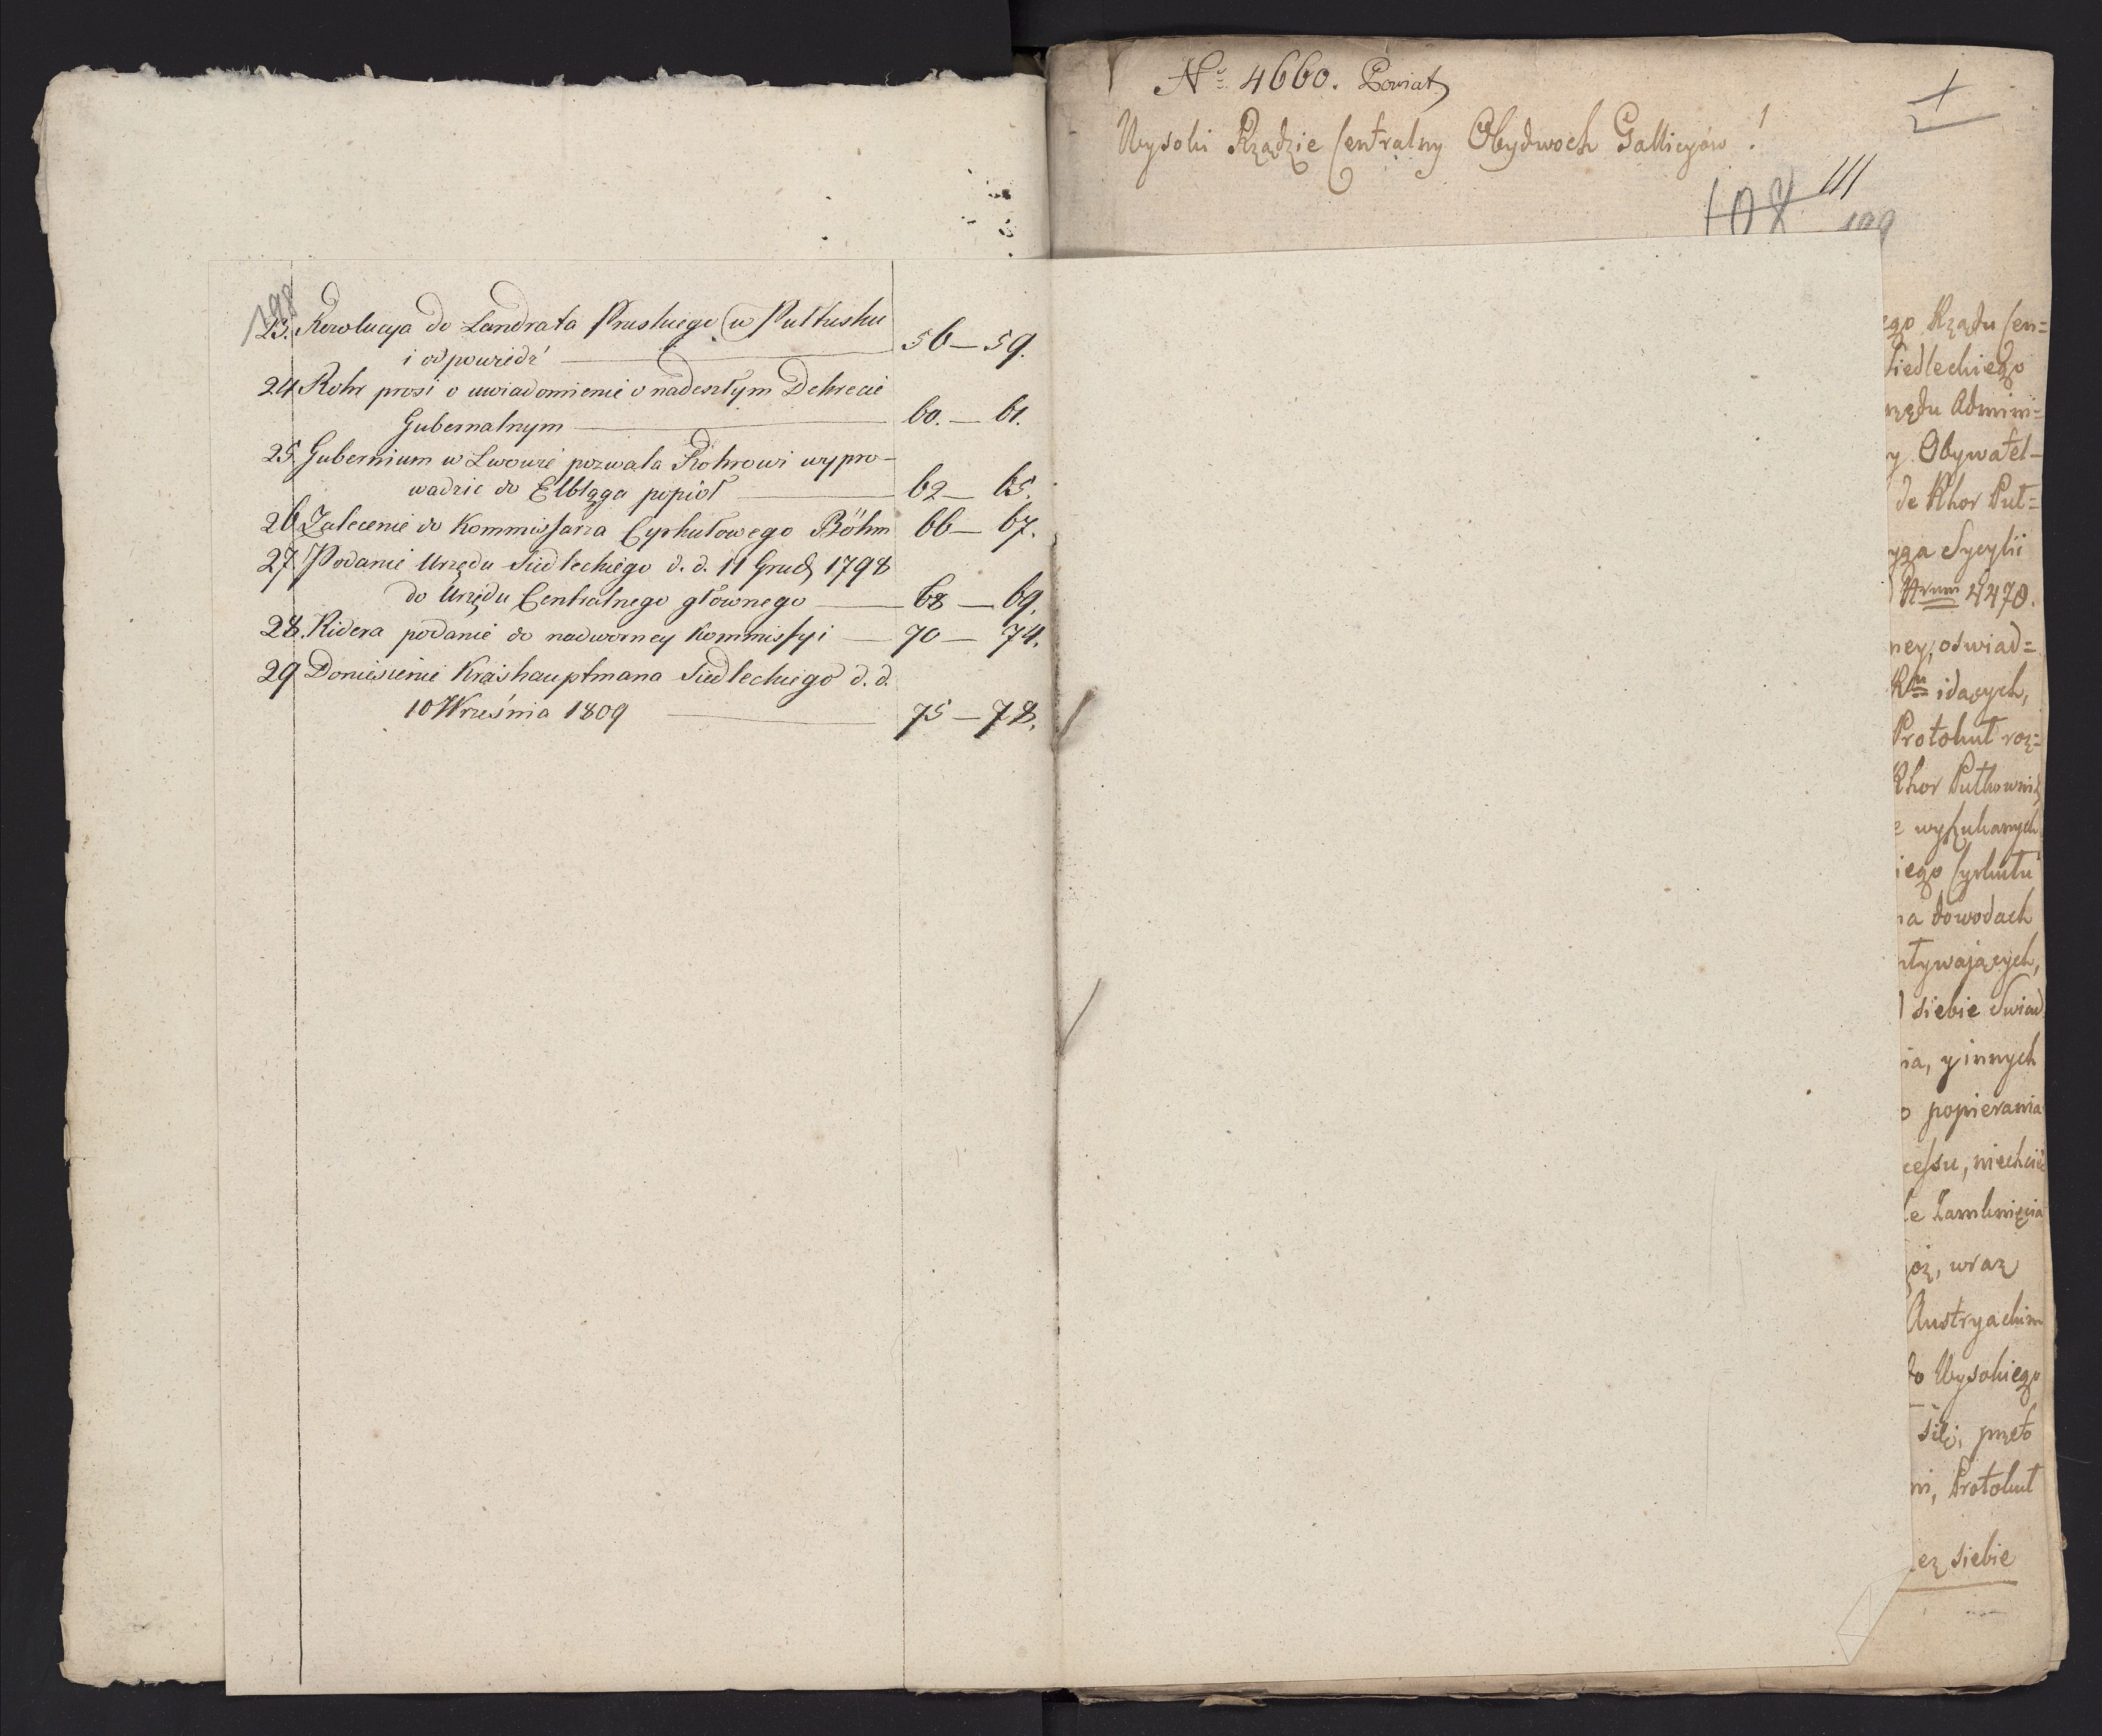 198
23. Rezolucya do Landrata Pruskiego w Pułtusku
i odpowiedź — 56 — 59.
24 Rohr prosi o uwiadomienie o nadeszłym Dekrecie
Gubernalnym — 60. — 61.
25. Gubernium w Lwowie pozwala Rohrowi wypro-
wadzic do Elbląga popioł — 62 — 65.
26 Zalecenie do Kommissarza Cyrkułowego Böhm 66 — 67.
27. Podanie Urzędu Siedleckiego d. d. 11 Grud. 1798
do Urzędu Centralnego głownego — 68 — 69.
28. Ridera podanie do nadworney Kommissyi — 70 — 74.
29 Doniesienie Kraishauptmana Siedleckiego d. d.
10 Września 1809 — 75 — 78.
No 4660. Powiat
1
Wysoki Rządzie Centralny Obydwoch Gallicyów!
108 111
199
ego Rządu Cen=
Siedleckiego
rzędu Admini=
y Obywatel-
de Rhor Puł=
yga Sycylii
Nrum 4470.
ney, oswiad=
idących,
Protokuł roz=
Rhor Pułkownik
e wyszukanych
iego Cyrkułu
na dowodach
pływających,
siebie Swiad
ia, y innych
o popierania
cessu, niechcie
le Zamknięcia
oz, wraz
Austryackim
do Wysokiego
się, przeto
ni, Protokuł
ez siebie